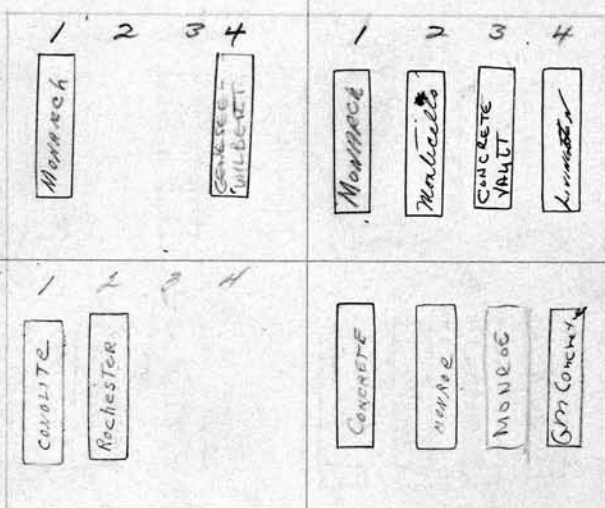 1 2 3 4
MONARCH
GENESEE-
WILBERT
1 2 3 4
MONARCH
Monticello
CONCRETE
VAULT
Livingston
1 2 3 4
CONOLITE
Rochester
CONCRETE
MONROE
MONROE
GM Concrete